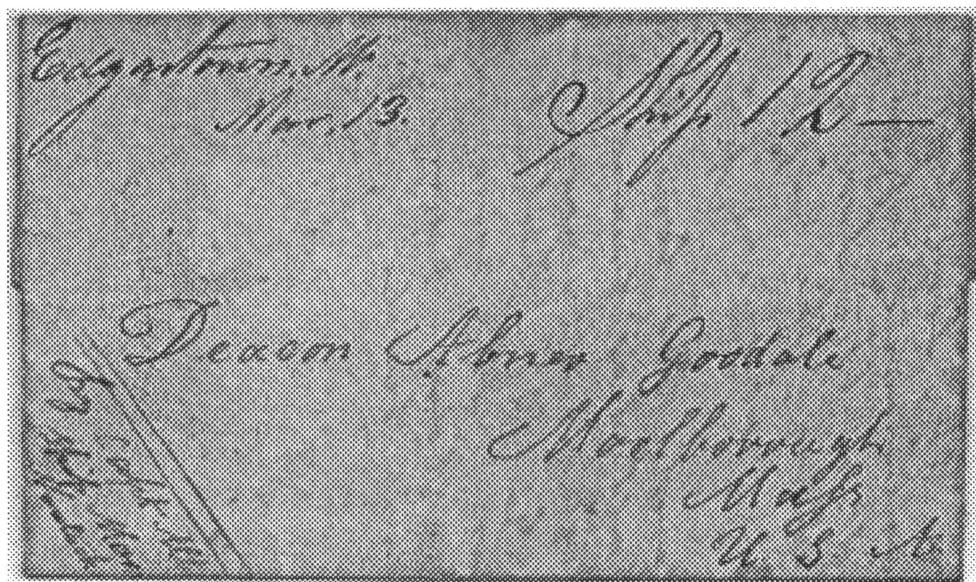 Edgartown, Ms.
Mar. 13.
Ship 12—
Deacon Abner Goodale
Marlborough
Mass
U. S. A.